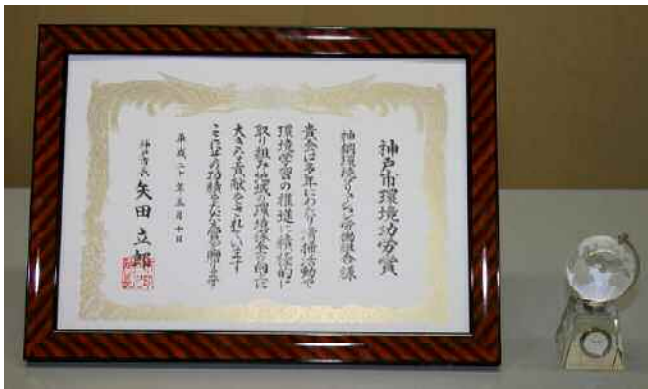 神戸市環境功労賞
神鋼環境ソリューション労働組合様
貴会は多年にわたり清掃活動や
環境学習の推進に積極的に
取り組み地域の環境保全の向上に
大きな貢献をされています
ここにその功績をたたえ賞を贈ります
平成二十年五月十日
神戸市長 矢田立郎